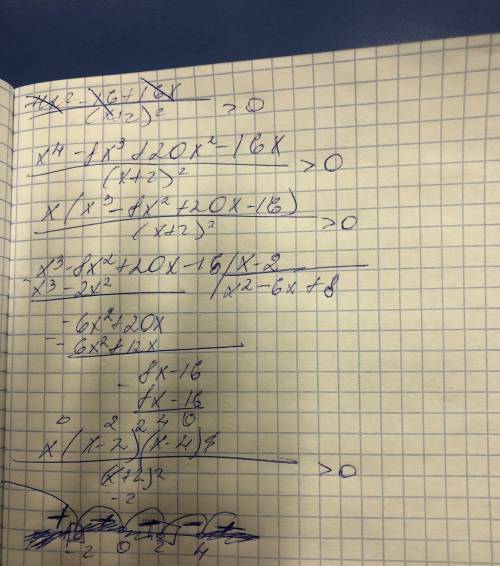 x⁴ - 8x³ + 20x² - 16x / (x+2)² > 0
x(x³ - 8x² + 20x - 16) / (x+2)² > 0
x³ - 8x² + 20x - 16 | x - 2
x³ - 2x² | x² - 6x + 8
- 6x² + 20x
- 6x² + 12x
8x - 16
8x - 16
0
0 2 2 4
x(x-2)(x-4) / (x+2)² > 0
-2
+ + - - +
-2 0 2 4